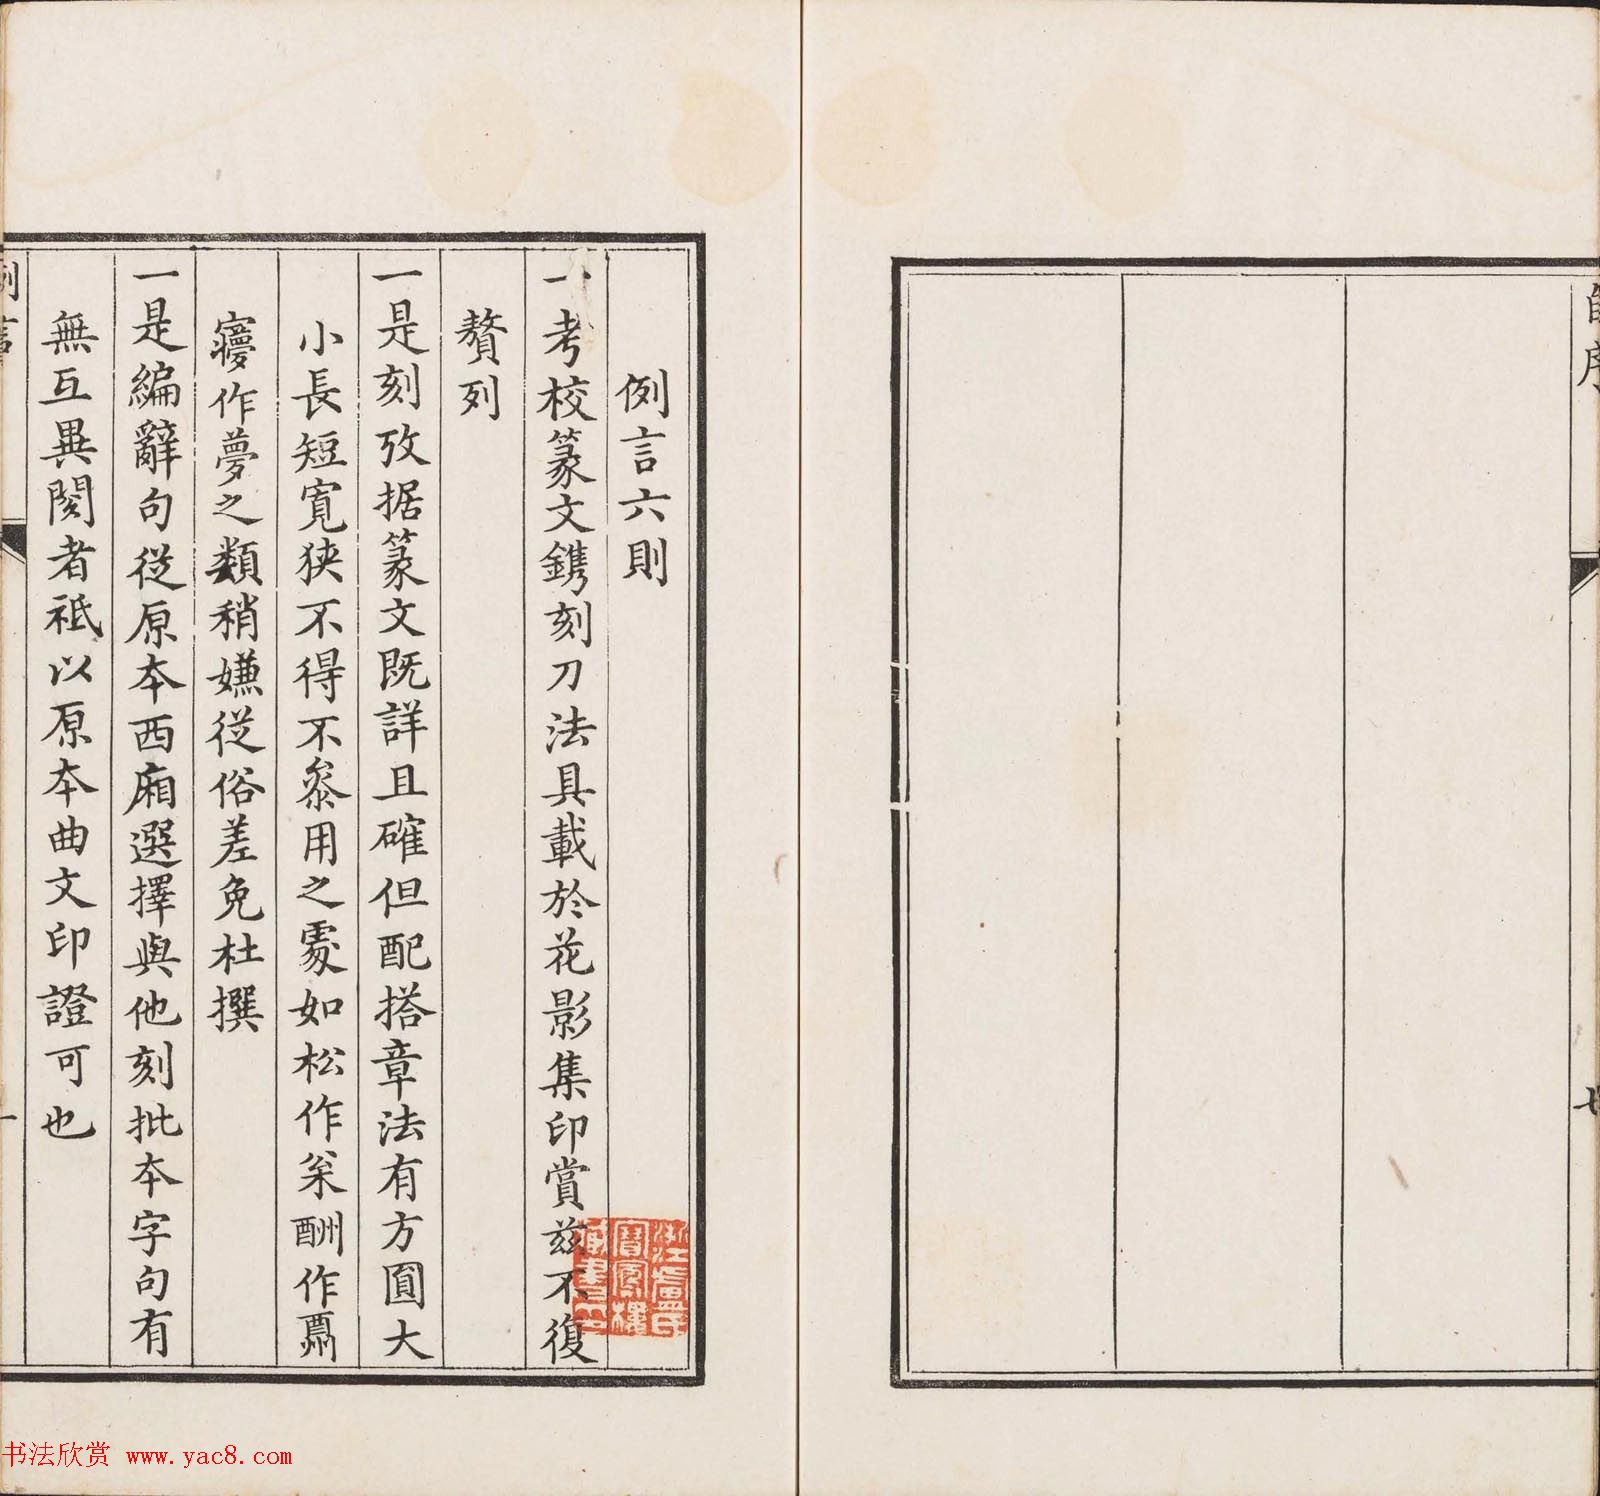 序
例言六則
一考校篆文鐫刻刀法具載於花影集印賞茲不復
贅列
一是刻攷据篆文既詳且確但配搭章法有方圓大
小長短寬狹不得不叅用之處如松作枀酬作酻
寱作夢之類稍嫌從俗差免杜撰
一是編辭句從原本西廂選擇與他刻批本字句有
無互異閱者祗以原本曲文印證可也
例言
一
书法欣赏 www.yac8.com